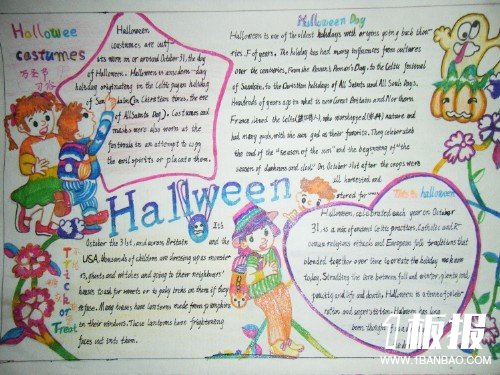 Hallowee
costumes
万圣节
习俗
Halloween
costumes are outf-
its worn on or around October 31, the day
of Halloween. Halloween is a modern-day
holiday originating in the Celtic pagan holiday
of Samhain (in Christian times, the eve
of All Saints Day). Costumes and
masks were also worn at the
festivals in an attempt to copy
the evil spirits or placate them.
Halloween Day
Halloween is one of the oldest holidays with origins going back thou-
ries of years. The holiday has had many influences from cultures
over the centuries. From the Roman's Pomona's Day, to the Celtic festival
of Samhain, to the Christian holidays of All Saints and All Souls Days.
Hundreds of years ago in what is now Great Britain and Northern
France, lived the Celts who worshipped nature and
had many gods, with the sun god as their favorite. They celebrated
the end of the "season of the sun" and the beginning of "the
season of darkness and cold." On October 31st after the crops were
all harvested and
stored for
Halween
It's
October the 31st, and across Britain and the
USA, thousands of children are dressing up as monsters,
ghosts and witches and going to their neighbours'
houses to ask for sweets or to play tricks on them if they
refuse. Many houses have lanterns made from pumpkins
in their windows. These lanterns have frightening
faces cut into them.
Trick or Treat
This is halloween
Halloween, celebrated each year on October
31, is a mix of ancient Celtic practices, Catholic and R
oman religious rituals and European folk traditions that
blended together over time to create the holiday we know
today. Straddling the line between fall and winter, plenty and
paucity and life and death, Halloween is a time of celeb-
ration and superstition. Halloween has long
been thought of as a
1板报
WWW.1BANBAO.COM